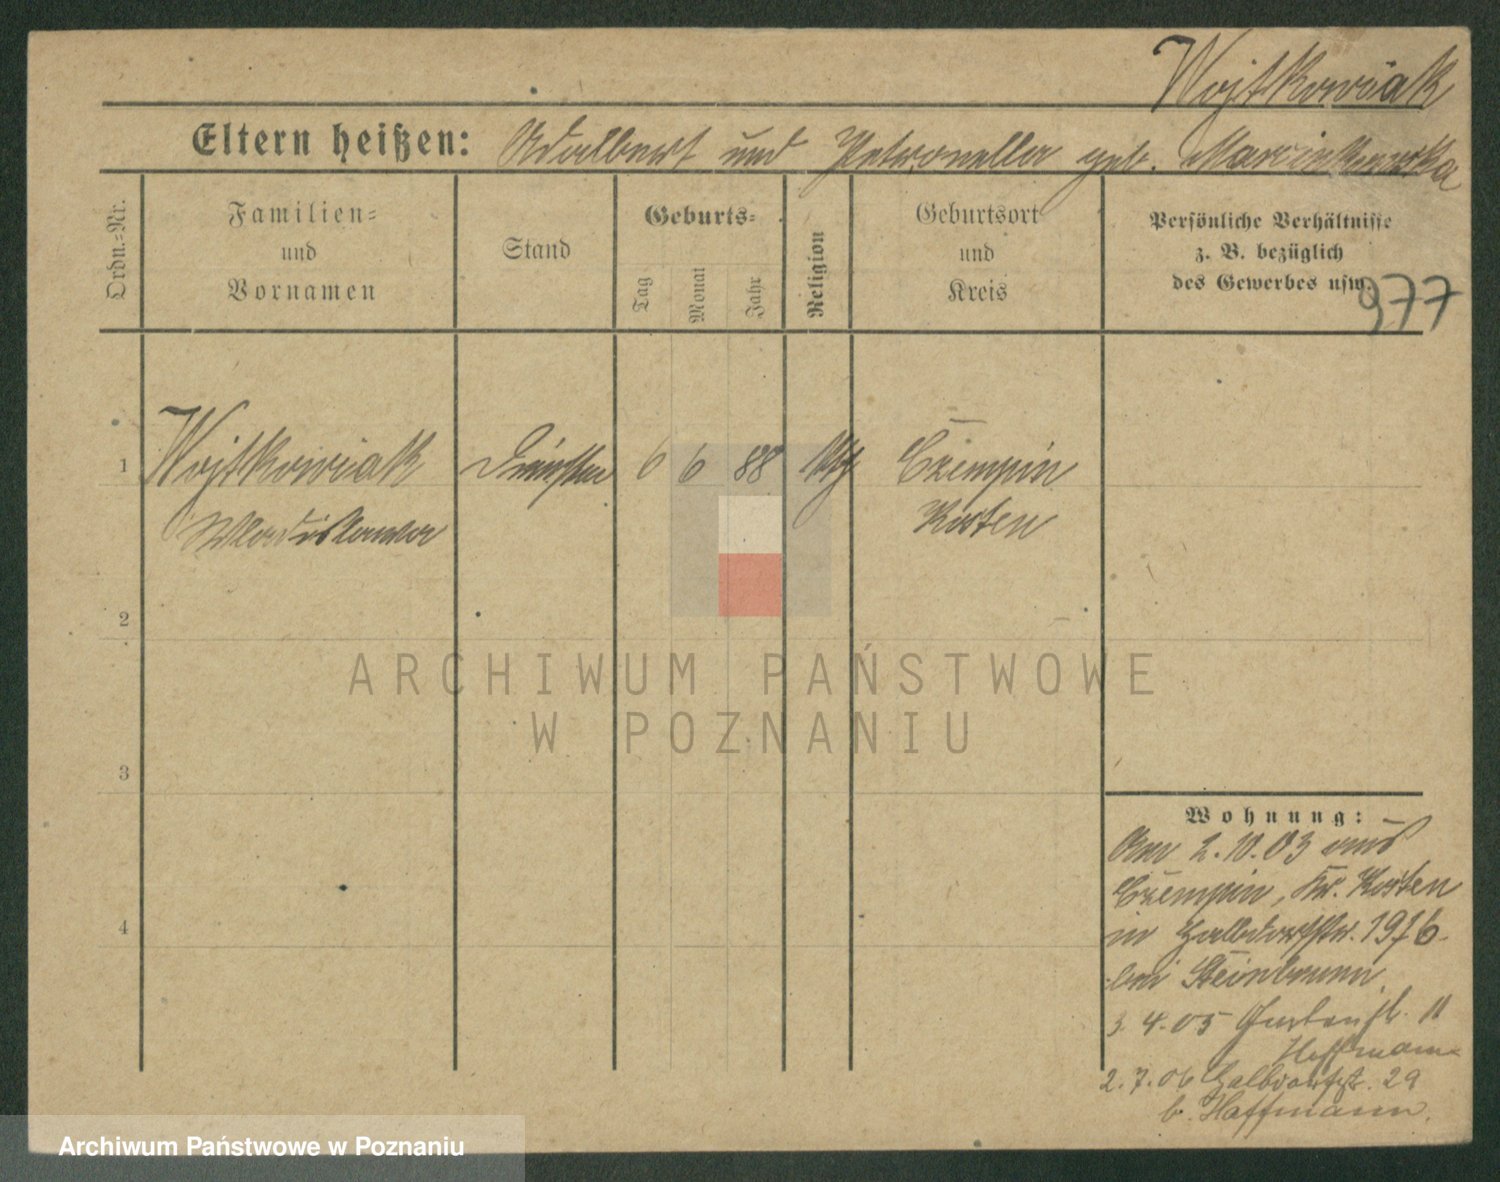 Wojtkowiak
Eltern heißen: Adalbert und Petronella geb. Marcinkowska
Ordn.-Nr.
Familien- und Vornamen
Stand
Geburts-
Tag
Monat
Jahr
Religion
Geburtsort und Kreis
Persönliche Verhältnisse
z. B. bezüglich
des Gewerbes usw.
977
1 Wojtkowiak
6 6 88
Czempin
Wladislawa
Kosten
2
3
4
Wohnung:
Am 2.10.03 aus
Czempin, Kr. Kosten
in Halbdorfstr.
bei Steinbrunn
3.4.05 Gartenstr. 11
Hoffmann
2.7.06 Halbdorfstr. 29
b. Hoffmann.
ARCHIWUM PAŃSTWOWE
W POZNANIU
Archiwum Państwowe w Poznaniu